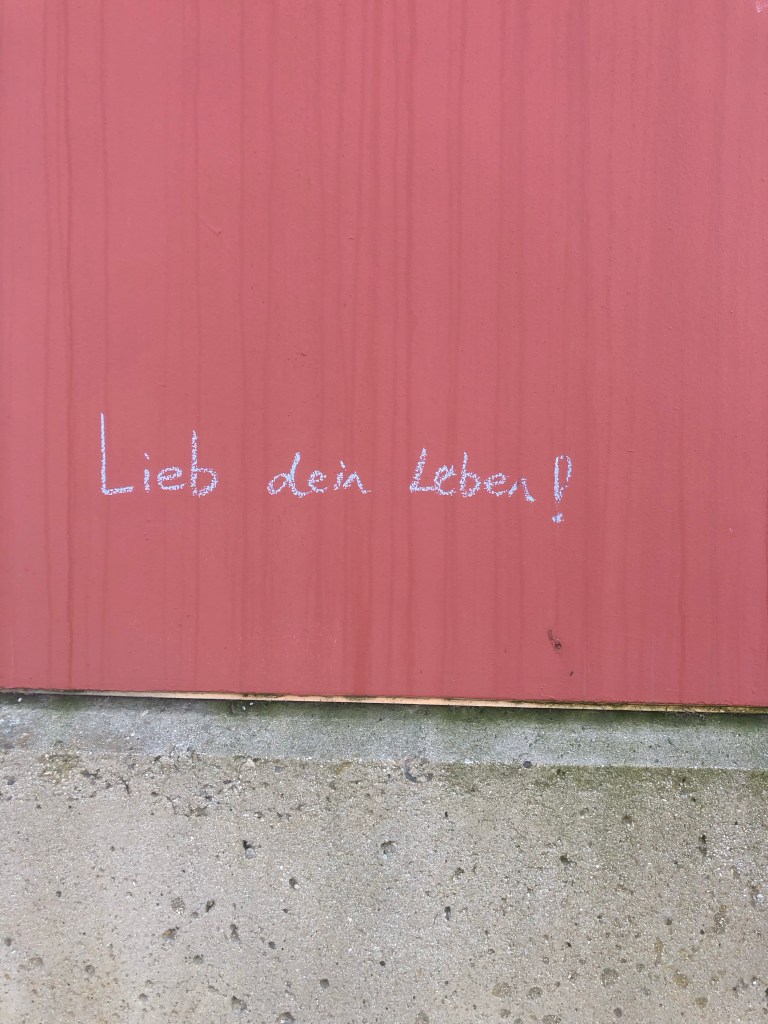 Lieb dein Leben!